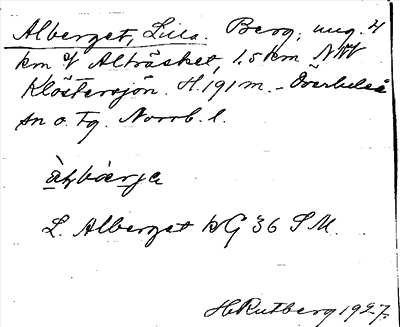 Alberget, Lilla. Berg, ung. 4
km V Alträsket, 1,5 km NNV
Klöstersjön. H. 191 m. - Överluleå
sn o. tg. Norrb. l.
L. Alberget kG 36 SM.
H. Rutberg 1927.